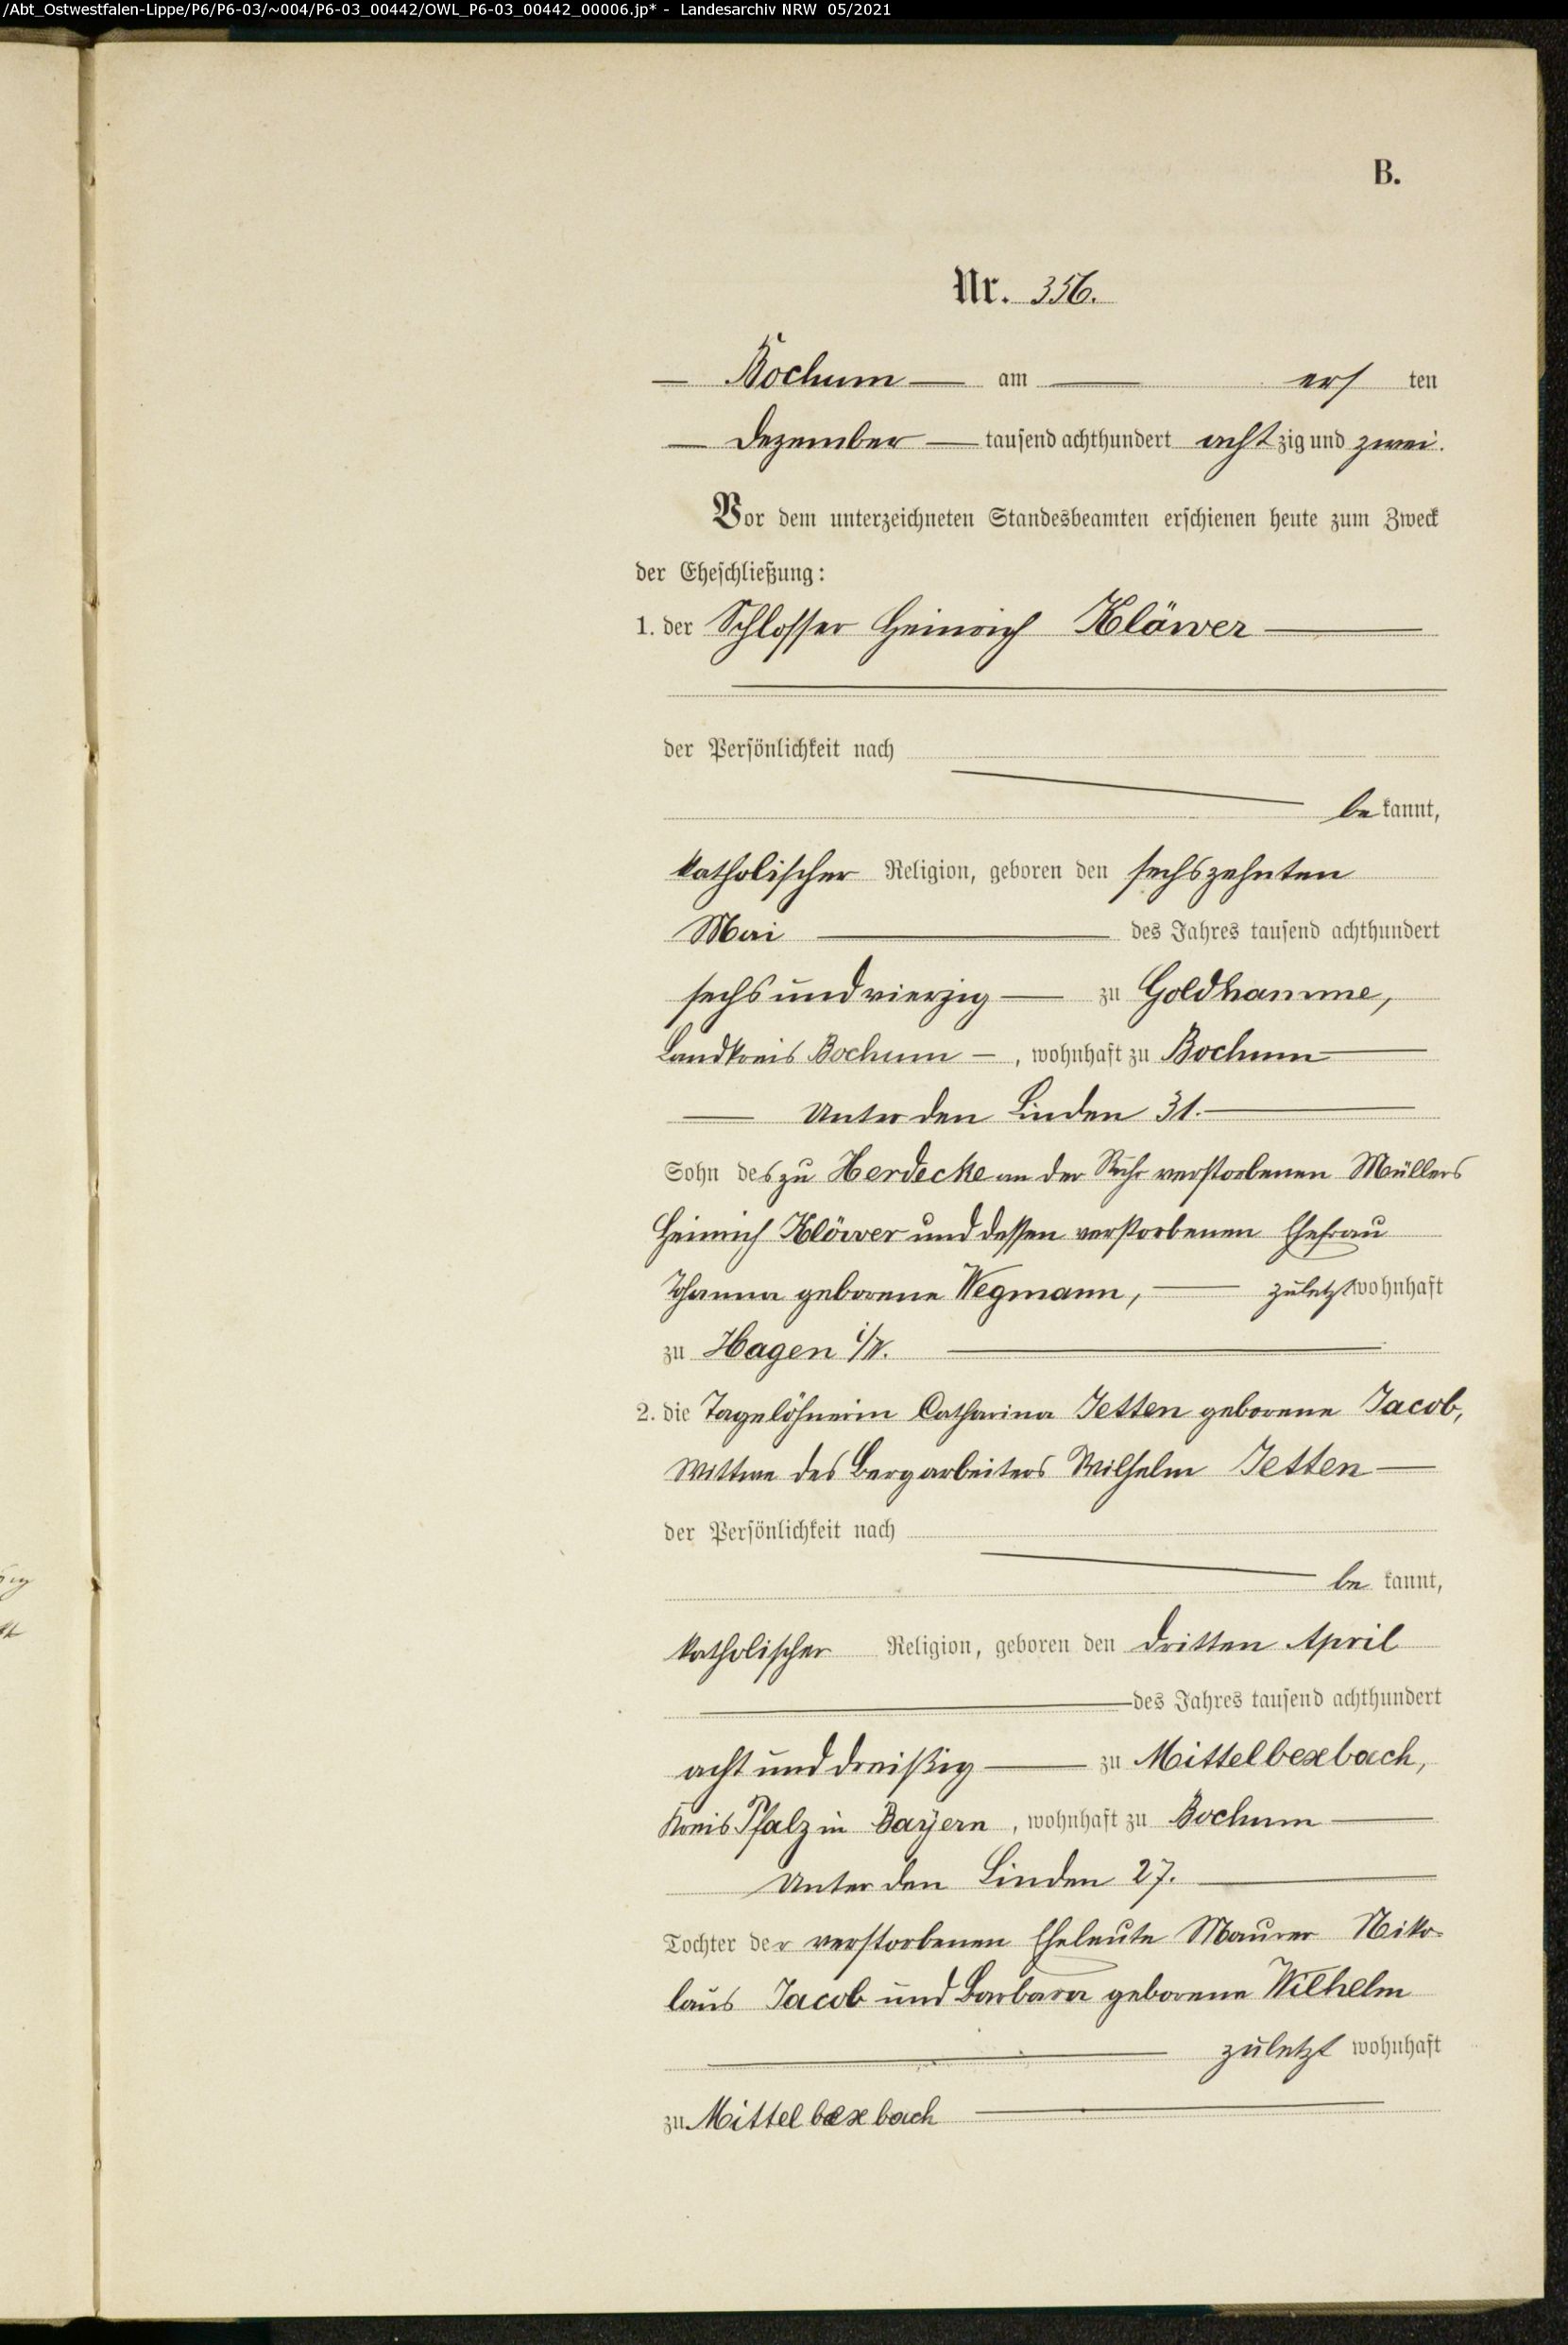 /Abt_Ostwestfalen-Lippe/P6/P6-03/~004/P6-03_00442/OWL_P6-03_00442_00006.jp* - Landesarchiv NRW 05/2021
B.
Nr. 356.
Bochum am ersten
Dezember tausend achthundert achtzig und zwei.
Vor dem unterzeichneten Standesbeamten erschienen heute zum Zweck
der Eheschließung:
1. der Schlosser Heinrich Klöwer
der Persönlichkeit nach
bekannt,
katholischer Religion, geboren den sechszehnten
Mai des Jahres tausend achthundert
sechs und vierzig zu Goldhamme,
Landkreis Bochum, wohnhaft zu Bochum
Unter den Linden 31.
Sohn des zu Herdecke an der Ruhr verstorbenen Müllers
Heinrich Klöwer und dessen verstorbenen Ehefrau
Johanna geborene Wegmann, zuletzt wohnhaft
zu Hagen i/W.
2. die Tagelöhnerin Catharina Jetten geborene Jacob,
Wittwe des Bergarbeiters Wilhelm Jetten
der Persönlichkeit nach
bekannt,
katholischer Religion, geboren den dritten April
des Jahres tausend achthundert
acht und dreißig zu Mittelbexbach,
Kreis Pfalz in Bayern, wohnhaft zu Bochum
Unter den Linden 27.
Tochter der verstorbenen Eheleute Maurer Niko-
laus Jacob und Barbara geborene Wilhelm
zuletzt wohnhaft
zu Mittelbexbach